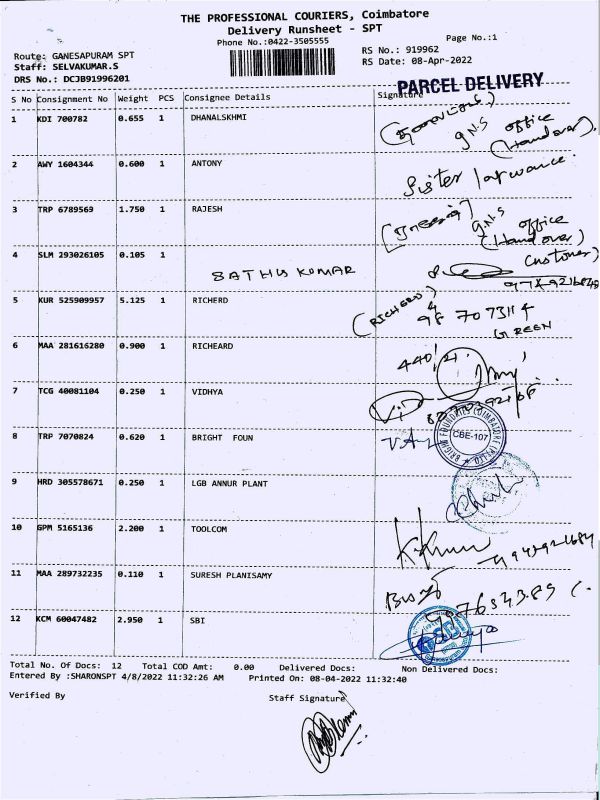 THE PROFESSIONAL COURIERS, Coimbatore
Delivery Runsheet - SPT
Phone No.:0422-3505555
Page No.:1
Route: GANESAPURAM SPT
RS No.: 919962
Staff: SELVAKUMAR.S
RS Date: 08-Apr-2022
DRS No.: DCJB91996201
PARCEL DELIVERY
S No Consignment No Weight PCS Consignee Details Signature
1 KDI 700782 0.655 1 DHANALSKHMI
G.N.S office
(Hand over).
2 AWY 1604344 0.600 1 ANTONY
Sister
3 TRP 6789569 1.750 1 RAJESH
G.N.S office
(Hand over)
4 SLM 293026105 0.105 1
SATHIS KUMAR
customer)
5 KUR 525909957 5.125 1 RICHERD
(RICHERD)
98 7073114
GREEN
6 MAA 281616280 0.900 1 RICHEARD
7 TCG 40081104 0.250 1 VIDHYA
8 TRP 7070824 0.620 1 BRIGHT FOUN
CBE-107
9 HRD 305578671 0.250 1 LGB ANNUR PLANT
10 GPM 5165136 2.200 1 TOOLCOM
11 MAA 289732235 0.110 1 SURESH PLANISAMY
12 KCM 60047482 2.950 1 SBI
Total No. Of Docs: 12 Total COD Amt: 0.00 Delivered Docs: Non Delivered Docs:
Entered By :SHARONSPT 4/8/2022 11:32:26 AM Printed On: 08-04-2022 11:32:40
Verified By Staff Signature